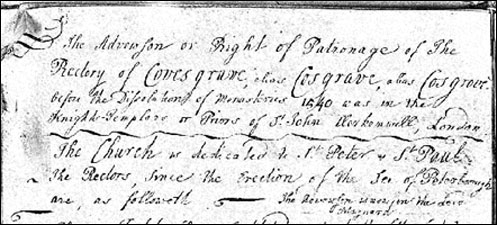 The Advowson or Right of Patronage of The
Rectory of Covesgrave, alias Cosgrave, alias Cosgrove
before the Dissolution of Monasteries 1540 was in the
Knights Templars or Priors of St. John Clerkenwell, London
The Church is dedicated to St. Peter & St. Paul
the Rectors since the Erection of the See of Peterborough
are, as followeth The Advowson is now in the